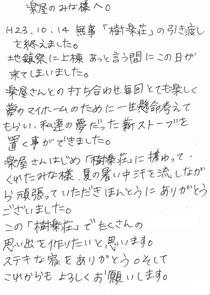 楽屋のみな様へ。
H23.10.14 無事「樹楽荘」の引き渡し
を終えました。
地鎮祭に上棟 あっと言う間にこの日が
来てしまいました。
楽屋さんとの打ち合わせ毎回とても楽しく
夢のマイホームのために一生懸命考えて
もらい、私達の夢だった薪ストーブを
置く事ができました。
楽屋さんはじめ「樹楽荘」に携わって
くれたみな様、夏の暑い中汗を流しなが
ら頑張っていただきほんとうにありがとう
ございました。
この「樹楽荘」でたくさんの
思い出を作りたいと思います。
ステキな家をありがとう。そして
これからもよろしくお願いします。